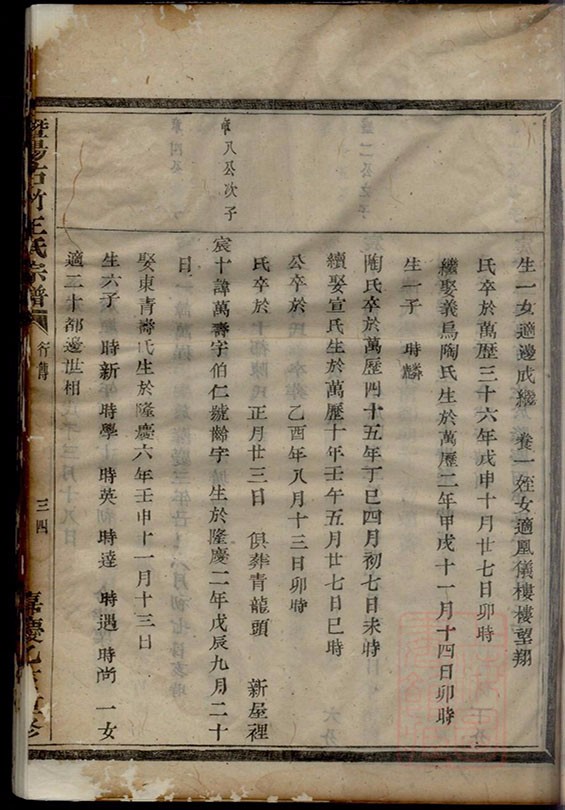 生一女適邊成繼 養一姪女適鳳儀樓樓望翔
氏卒於萬歷三十六年戊申十月廿七日卯時
繼娶義烏陶氏生於萬歷二年甲戌十一月十四日卯時
生一子 時麟
陶氏卒於萬歷四十五年丁巳四月初七日未時
續娶宣氏生於萬歷十年壬午五月廿七日巳時
公卒於 乙酉年八月十三日卯時
氏卒於 正月廿三日 俱葬青龍頭 新屋裡
八公次子
宸十諱萬壽字伯仁號齡宇 生於隆慶二年戊辰九月二十
日
娶東青壽氏生於隆慶六年壬申十一月十三日
生六子 時新 時學 時英 時達 時遇 時尚 一女
適二十都邊世相
暨陽石竹王氏宗譜
行傳
三四
嘉慶乙